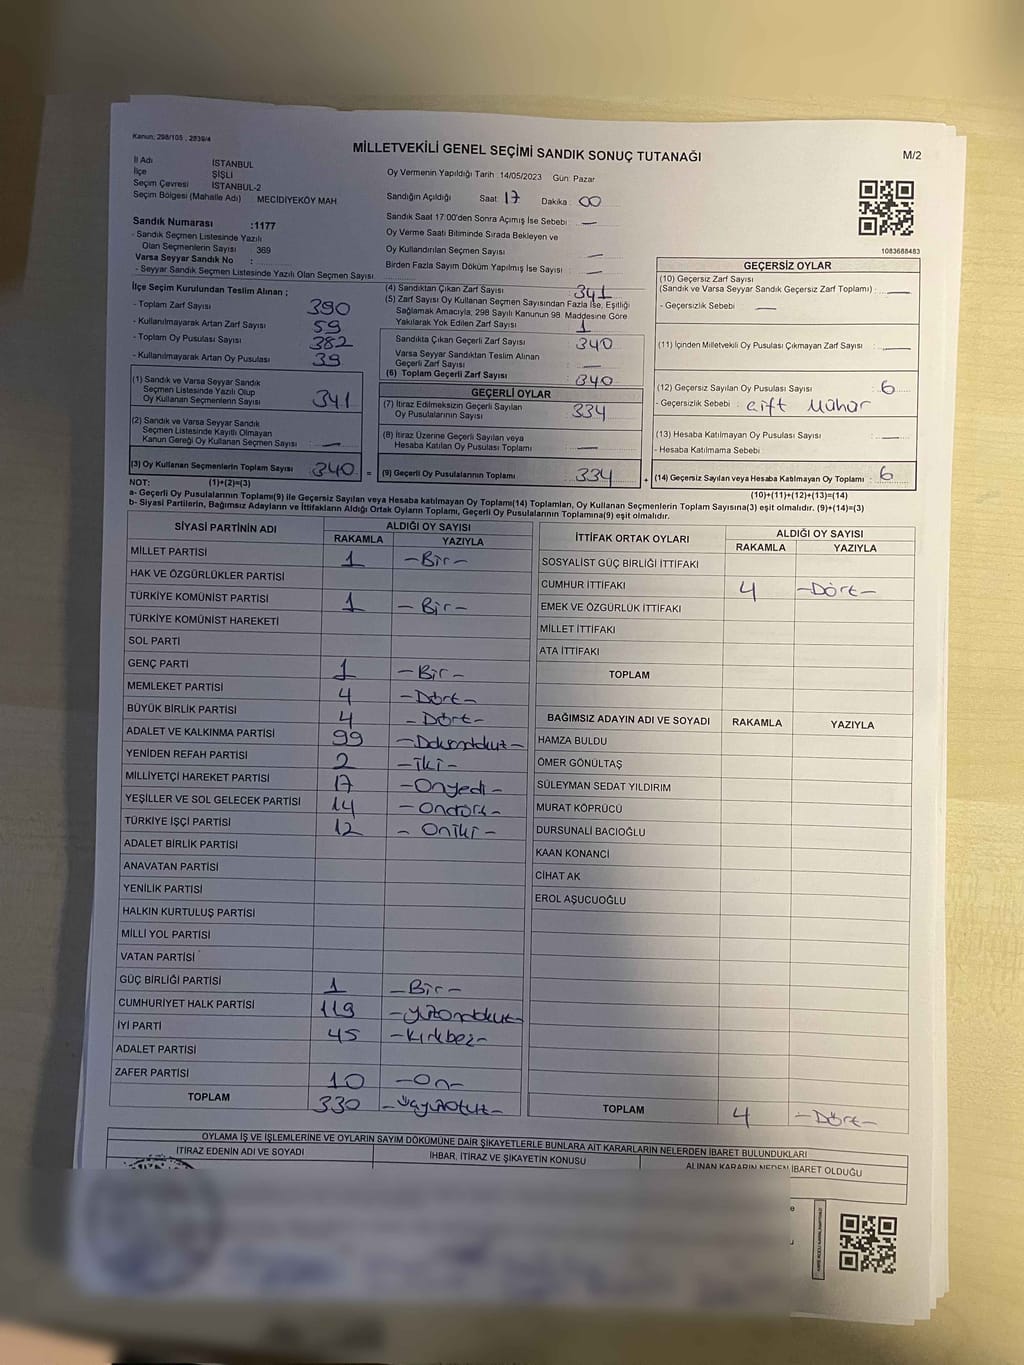 Kanun; 298/105 , 2839/4
MİLLETVEKİLİ GENEL SEÇİMİ SANDIK SONUÇ TUTANAĞI
M/2
İl Adı İSTANBUL
İlçe ŞİŞLİ
Seçim Çevresi İSTANBUL-2
Seçim Bölgesi (Mahalle Adı) MECİDİYEKÖY MAH
Sandık Numarası :1177
- Sandık Seçmen Listesinde Yazılı
Olan Seçmenlerin Sayısı 369
Varsa Seyyar Sandık No :
- Seyyar Sandık Seçmen Listesinde Yazılı Olan Seçmen Sayısı
Oy Vermenin Yapıldığı Tarih :14/05/2023 Gün: Pazar
Sandığın Açıldığı Saat 17 Dakika : 00
Sandık Saat 17:00'den Sonra Açımış İse Sebebi : —
Oy Verme Saati Bitiminde Sırada Bekleyen ve
Oy Kullandırılan Seçmen Sayısı —
Birden Fazla Sayım Döküm Yapılmış İse Sayısı : —
1083688483
İlçe Seçim Kurulundan Teslim Alınan ;
- Toplam Zarf Sayısı 390
- Kullanılmayarak Artan Zarf Sayısı 59
- Toplam Oy Pusulası Sayısı 382
- Kullanılmayarak Artan Oy Pusulası 39
(1) Sandık ve Varsa Seyyar Sandık
Seçmen Listesinde Yazılı Olup
Oy Kullanan Seçmenlerin Sayısı 341
(2) Sandık ve Varsa Seyyar Sandık
Seçmen Listesinde Kayıtlı Olmayan
Kanun Gereği Oy Kullanan Seçmen Sayısı : —
(3) Oy Kullanan Seçmenlerin Toplam Sayısı 340 =
(4) Sandıktan Çıkan Zarf Sayısı : 341
(5) Zarf Sayısı Oy Kullanan Seçmen Sayısından Fazla İse, Eşitliği
Sağlamak Amacıyla; 298 Sayılı Kanunun 98. Maddesine Göre
Yakılarak Yok Edilen Zarf Sayısı : 1
Sandıkta Çıkan Geçerli Zarf Sayısı : 340
Varsa Seyyar Sandıktan Teslim Alınan
Geçerli Zarf Sayısı : —
(6) Toplam Geçerli Zarf Sayısı : 340
GEÇERLİ OYLAR
(7) İtiraz Edilmeksizin Geçerli Sayılan
Oy Pusulalarının Sayısı : 334
(8) İtiraz Üzerine Geçerli Sayılan veya
Hesaba Katılan Oy Pusulası Toplamı : —
(9) Geçerli Oy Pusulalarının Toplamı : 334 +
GEÇERSİZ OYLAR
(10) Geçersiz Zarf Sayısı
(Sandık ve Varsa Seyyar Sandık Geçersiz Zarf Toplamı) : —
- Geçersizlik Sebebi : —
(11) İçinden Milletvekili Oy Pusulası Çıkmayan Zarf Sayısı : —
(12) Geçersiz Sayılan Oy Pusulası Sayısı : 6
- Geçersizlik Sebebi : çift Mühür
(13) Hesaba Katılmayan Oy Pusulası Sayısı : —
- Hesaba Katılmama Sebebi
(14) Geçersiz Sayılan veya Hesaba Katılmayan Oy Toplamı : 6
NOT: (1)+(2)=(3)
(10)+(11)+(12)+(13)=(14)
a- Geçerli Oy Pusulalarının Toplamı(9) ile Geçersiz Sayılan veya Hesaba katılmayan Oy Toplamı(14) Toplamları, Oy Kullanan Seçmenlerin Toplam Sayısına(3) eşit olmalıdır. (9)+(14)=(3)
b- Siyasi Partilerin, Bağımsız Adayların ve İttifakların Aldığı Ortak Oyların Toplamı, Geçerli Oy Pusulalarının Toplamına(9) eşit olmalıdır.
SİYASİ PARTİNİN ADI ALDIĞI OY SAYISI
RAKAMLA YAZIYLA
MİLLET PARTİSİ 1 -Bir-
HAK VE ÖZGÜRLÜKLER PARTİSİ
TÜRKİYE KOMÜNİST PARTİSİ 1 -Bir-
TÜRKİYE KOMÜNİST HAREKETİ
SOL PARTİ
GENÇ PARTİ 1 -Bir-
MEMLEKET PARTİSİ 4 -Dört-
BÜYÜK BİRLİK PARTİSİ 4 -Dört-
ADALET VE KALKINMA PARTİSİ 99 -Doksandokuz-
YENİDEN REFAH PARTİSİ 2 -iki-
MİLLİYETÇİ HAREKET PARTİSİ 17 -Onyedi-
YEŞİLLER VE SOL GELECEK PARTİSİ 14 -Ondört-
TÜRKİYE İŞÇİ PARTİSİ 12 -Oniki-
ADALET BİRLİK PARTİSİ
ANAVATAN PARTİSİ
YENİLİK PARTİSİ
HALKIN KURTULUŞ PARTİSİ
MİLLİ YOL PARTİSİ
VATAN PARTİSİ
GÜÇ BİRLİĞİ PARTİSİ 1 -Bir-
CUMHURİYET HALK PARTİSİ 119 -yüzondokuz-
İYİ PARTİ 45 -Kırkbeş-
ADALET PARTİSİ
ZAFER PARTİSİ 10 -On-
TOPLAM 330 -üçyüzotuz-
İTTİFAK ORTAK OYLARI ALDIĞI OY SAYISI
RAKAMLA YAZIYLA
SOSYALİST GÜÇ BİRLİĞİ İTTİFAKI
CUMHUR İTTİFAKI 4 -Dört-
EMEK VE ÖZGÜRLÜK İTTİFAKI
MİLLET İTTİFAKI
ATA İTTİFAKI
TOPLAM
BAĞIMSIZ ADAYIN ADI VE SOYADI RAKAMLA YAZIYLA
HAMZA BULDU
ÖMER GÖNÜLTAŞ
SÜLEYMAN SEDAT YILDIRIM
MURAT KÖPRÜCÜ
DURSUNALİ BACIOĞLU
KAAN KONANCİ
CİHAT AK
EROL AŞUCUOĞLU
TOPLAM 4 -Dört-
OYLAMA İŞ VE İŞLEMLERİNE VE OYLARIN SAYIM DÖKÜMÜNE DAİR ŞİKAYETLERLE BUNLARA AİT KARARLARIN NELERDEN İBARET BULUNDUKLARI
İTİRAZ EDENİN ADI VE SOYADI İHBAR, İTİRAZ VE ŞİKAYETİN KONUSU ALINAN KARARIN NEDEN İBARET OLDUĞU